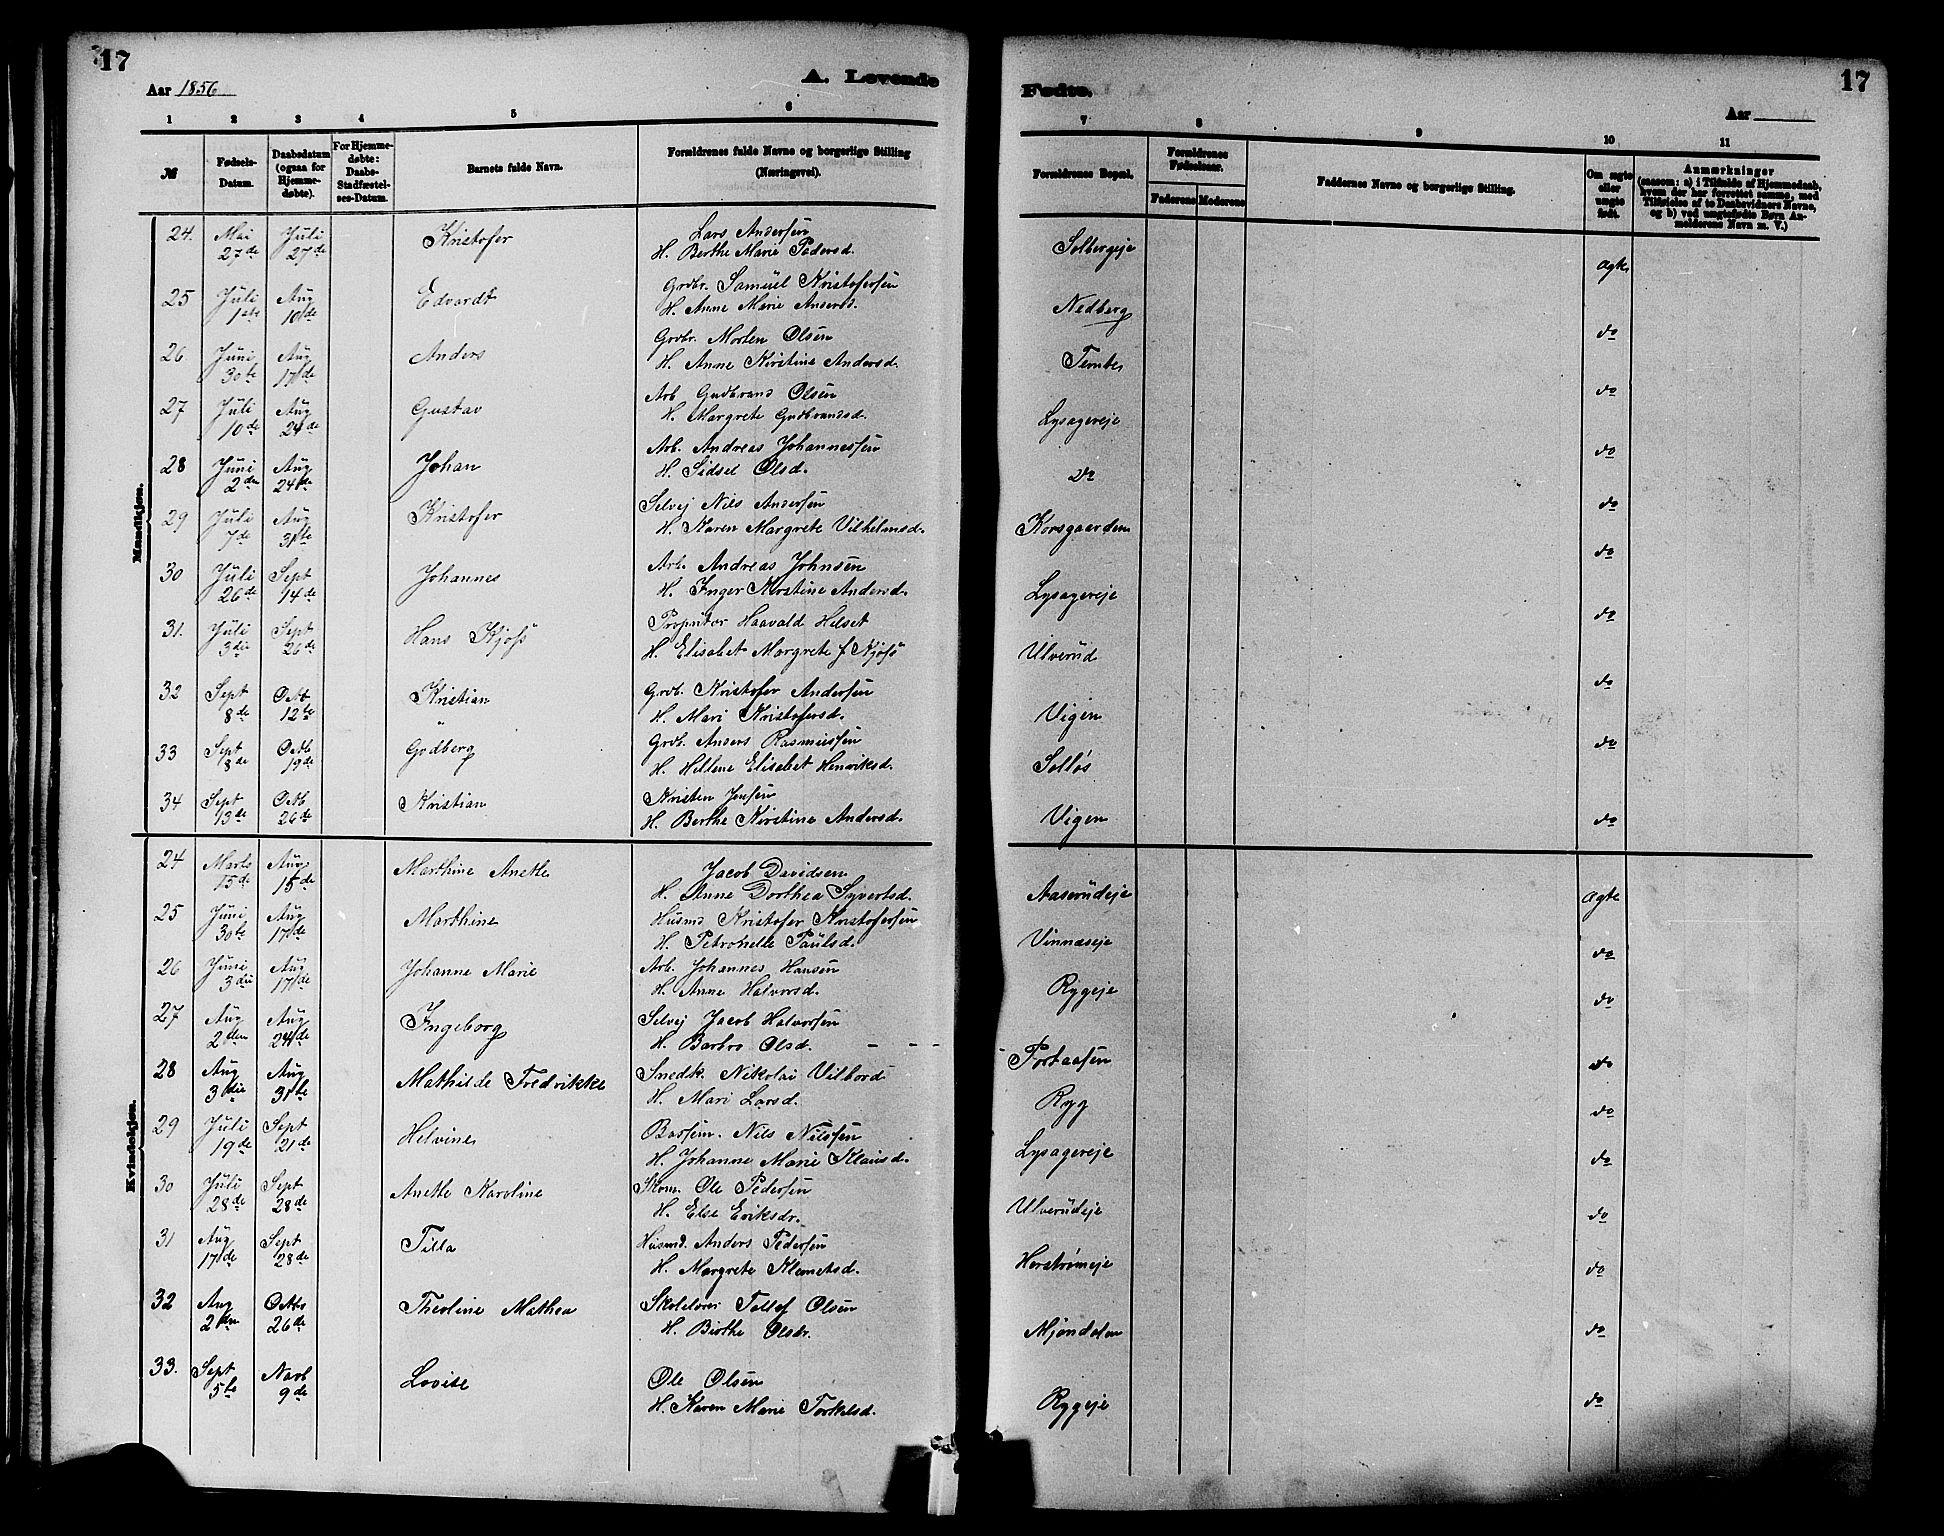 17
Aar 1856
A. Levende
1 2 3 4 5 6
№ Fødsels-Datum. Daabsdatum (ogsaa for Hjemme-døbte). For Hjemme-døbte: Daabs-Stadfæstel-ses-Datum. Barnets fulde Navn. Forældrenes fulde Navne og borgerlige Stilling (Næringsvei).
Mandkjøn.
24. Mai 27de Juli 27de Kristofer Lars Andersen
H. Berthe Marie Pedersd.
25 Juli 1ste Aug 10de Edvardt Grdbr. Samuel Kristofersen
H. Anne Marie Andersd.
26 Juni 30te Aug 17de Anders Grdbr. Morten Olsen
H. Anne Kirstine Andersd.
27 Juli 10de Aug 24de Gustav Arb Gudbrand Olsen
H. Margrete Gudbrandsd.
28 Juni 2den Aug 24de Johan Arb. Andreas Johannessen
H. Sidsel Olsd.
29 Juli 7de Aug 31te Kristofer Selvej Nils Andersen
H. Karen Margrete Vilhelmsd.
30 Juli 26de Sept 14de Johannes Arb. Andreas Johnsen
H. Inger Kirstine Andersd.
31. Juli 3die Sept 26de Hans Kjøss Propritær Haavald Helset
H. Elisabet Margrete f. Kjøss
32 Sept 8de Octb 12te Kristian Grdb. Kristofer Andersen
H. Mari Kristofersd.
33 Sept 8de Octb 19de Godberg Grdb. Anders Rasmussen
H. Hellene Elisabet Henriksd.
34 Sept 13de Octb 26de Kristian Kristen Jensen
H. Berthe Kirstine Andersd.
Kvindekjøn.
24 Marts 15de Aug 15de Marthine Anette Jacob Davidsen
H. Anne Dorthea Syvertsd.
25 Juni 30te Aug 17de Marthine Husmd Kristofer Kristofersen
H. Petronelle Paulsd.
26 Juni 3die Aug 17de Johanne Marie Arb. Johannes Hansen
H. Anne Halvorsd.
27 Aug 2den Aug 24de Ingeborg Selvej Jacob Halvorsen
H. Barbro Olsd.
28 Aug 3die Aug 31te Mathilde Fredrikke Snedk. Nikolai Vilbord
H. Mari Larsd.
29 Juli 19de Sept 21de Helvine Barsem. Nils Nilssen
H. Johanne Marie Klausd.
30 Juli 28de Sept 28de Anette Karoline Skom. Ole Pedersen
H. Else Eriksdr.
31 Aug 17de Sept 28de Tilla Husmd. Anders Pedersen
H. Margrete Klemetsd.
32 Aug 2den Octbr 26de Theoline Mathea Skolelærer Tollef Olsen
H. Birthe Olsdr.
33. Sept 5te Novb 9de Lovise Ole Olsen
H. Karen Marie Torkelsd.
17
Fødte.
Aar
7 8 9 10 11
Forældrenes Bopæl. Forældrenes Fødselsaar. Faderens Moderens Faddernes Navne og borgerlige Stilling. Om ægte eller uægte født. Anmærkninger (saasom: a) i Tilfælde af Hjemmedaab, hvem der har forrettet samme, med Tilføielse af to Daabsvidners Navne, og b) ved uægtefødte Børn An-melderens Navn m. V.)
Solbergeje Ægte
Nedberg do
Temte do
Lysagereje do
do do
Korsgaarden do
Lysagereje do
Ulverud do
Vigen do
Solløs do
Vigen do
Aaserudeje Ægte
Vinnæseje do
Rygeje do
Portaasen do
Ryg do
Lysagereje do
Ulverudeje do
Horstrømeje do
Mjøndalen do
Rygeje do